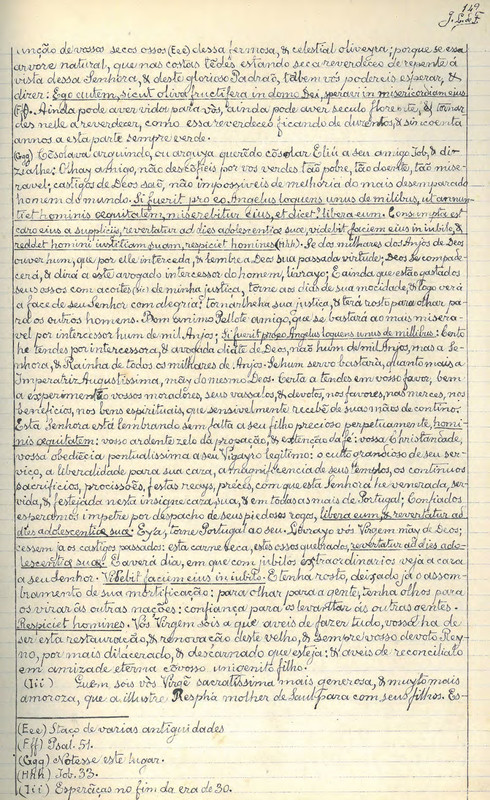 149
unção de vossos secos ossos (Eee) dessa fermosa, & celestial oliveyra; porque se essa
arvore natural, que nas costas tẽdes estando seca reverdeceo de repente á
vista dessa Senhora, & deste glorioso Padraõ, tãbem vós podereis esperar, &
dizer: Ego autem, sicut oliva fructifera in domo Dei, speravi in misericordiam eius.
(Fff). Ainda pode aver vidor para vós, ainda pode aver seculo florente, & tornar
des nelle a reverdecer, como essa reverdeceo ficando de duzentos, & sincoenta
annos a esta parte sempre verde.
(Ggg) Cõsolava arguindo, ou arguya querẽdo cõsolar Eliú a seu amigo Job, & di-
zialhe: Olhay amigo, não descõfieis por vos verdes tão pobre, tão doente, tão mise-
ravel; castigos de Deos saõ, não impossiveis de melhoria do mais desemparado
homem do mundo. Si fuerit pro eo Angelus loquens unus de milibus, ut annun-
tiet hominis æquitatem, miserebitur eius, et dicet, libera eum. Consumpta est
caro eius a suppliciis, revertatur ad dies adolescentiæ suæ, videbit faciem eius in iubilo, &
reddet homini iustitiam suam, respiciet homines (Hhh). Se dos milhares dos Anjos de Deos
ouver hum, que por elle interceda, & lembre a Deos sua passada virtude; Deos se compade-
cerá, & dirá a este avogado intercessor do homem, livrayo; E ainda que estão gastados
seus ossos com acoites (sic) de minha justiça, torne aos dias de sua mocidade, & logo verá
a face de seu Senhor com alegria: tornarlheha sua justiça, & terá rosto para olhar pa-
ra os outros homens. Bom animo Pellote amigo, que se bastará ao mais misera-
vel por intercessor hum de mil Anjos; Si fuerit pro eo Angelus loquens unus de millibus: Certo
he tendes por intercessora, & avogada diãte de Deos, não hum de mil Anjos, mas a Se-
nhora, & Rainha de todos os milhares de Anjos. Se hum servo bastaria, quanto mais a
Imperatriz Augustissima, mãy do mesmo Deos. Certa a tendes em vosso favor, bem
a experimentão vossos moradores, seus vassalos, & devotos, nos favores, nas merces, nos
beneficios, nos bens espirituais, que sensivelmente recebẽ de suas mãos de contino.
Esta Senhora está lembrando sem falta a seu filho precioso perpetuamente, homi-
nis æquitatem: vosso ardente zelo da propação, & extenção da fé: vossa Christandade,
vossa obediẽcia pontualissima a seu Vigayro legitimo: o culto grandioso de seu ser-
viço, a liberalidade para sua caza, a magnificencia de seus Templos, os continuos
sacrificios, procissões, festas, rezas, préces, com que esta Senhora he venerada, ser-
vida, & festejada nesta insigne caza sua, & em todas as mais de Portugal; Confiados
esperamos impetre por despacho de seus piedosos rogos, libera eum, & revertatur ad
dies adolescentiæ suæ. Eya, torne Portugal ao seu. Livrayo vós Virgem mãy de Deos;
cessem já os castigos passados: esta carne seca, estes ossos quebrados, revertatur ad dies ado-
lescentiæ suæ. E averá dia, em que com jubilos extraordinarios veja a cara
a seu senhor. Videbit faciem eius in iubilo. E tenha rosto, deixado já o assom-
bramento de sua mortificação: para olhar para a gente, tenha olhos para
os virar ás outras nações: confiança para os levantar ás outras gentes.
Respiciet homines. Vós Virgem sois a que aveis de fazer tudo, vossa ha de
ser esta restauração, & renovação deste velho, & sempre vosso devoto Rey-
no, por mais dilacerado, & descarnado que esteja: & aveis de reconcilialo
em amizade eterna cõ vosso unigenito filho.
(Iii) Quem sois vós Virgẽ sacratissima mais generosa, & muyto mais
amoroza, que a illustre Respha molher de Saul para com seus filhos. Es-
(Eee) Staço de varias antiguidades
(Fff) Psal. 51.
(Ggg) Notesse este lugar.
(Hhh) Job. 33.
(Iii) Esperãças no fim da era de 30.